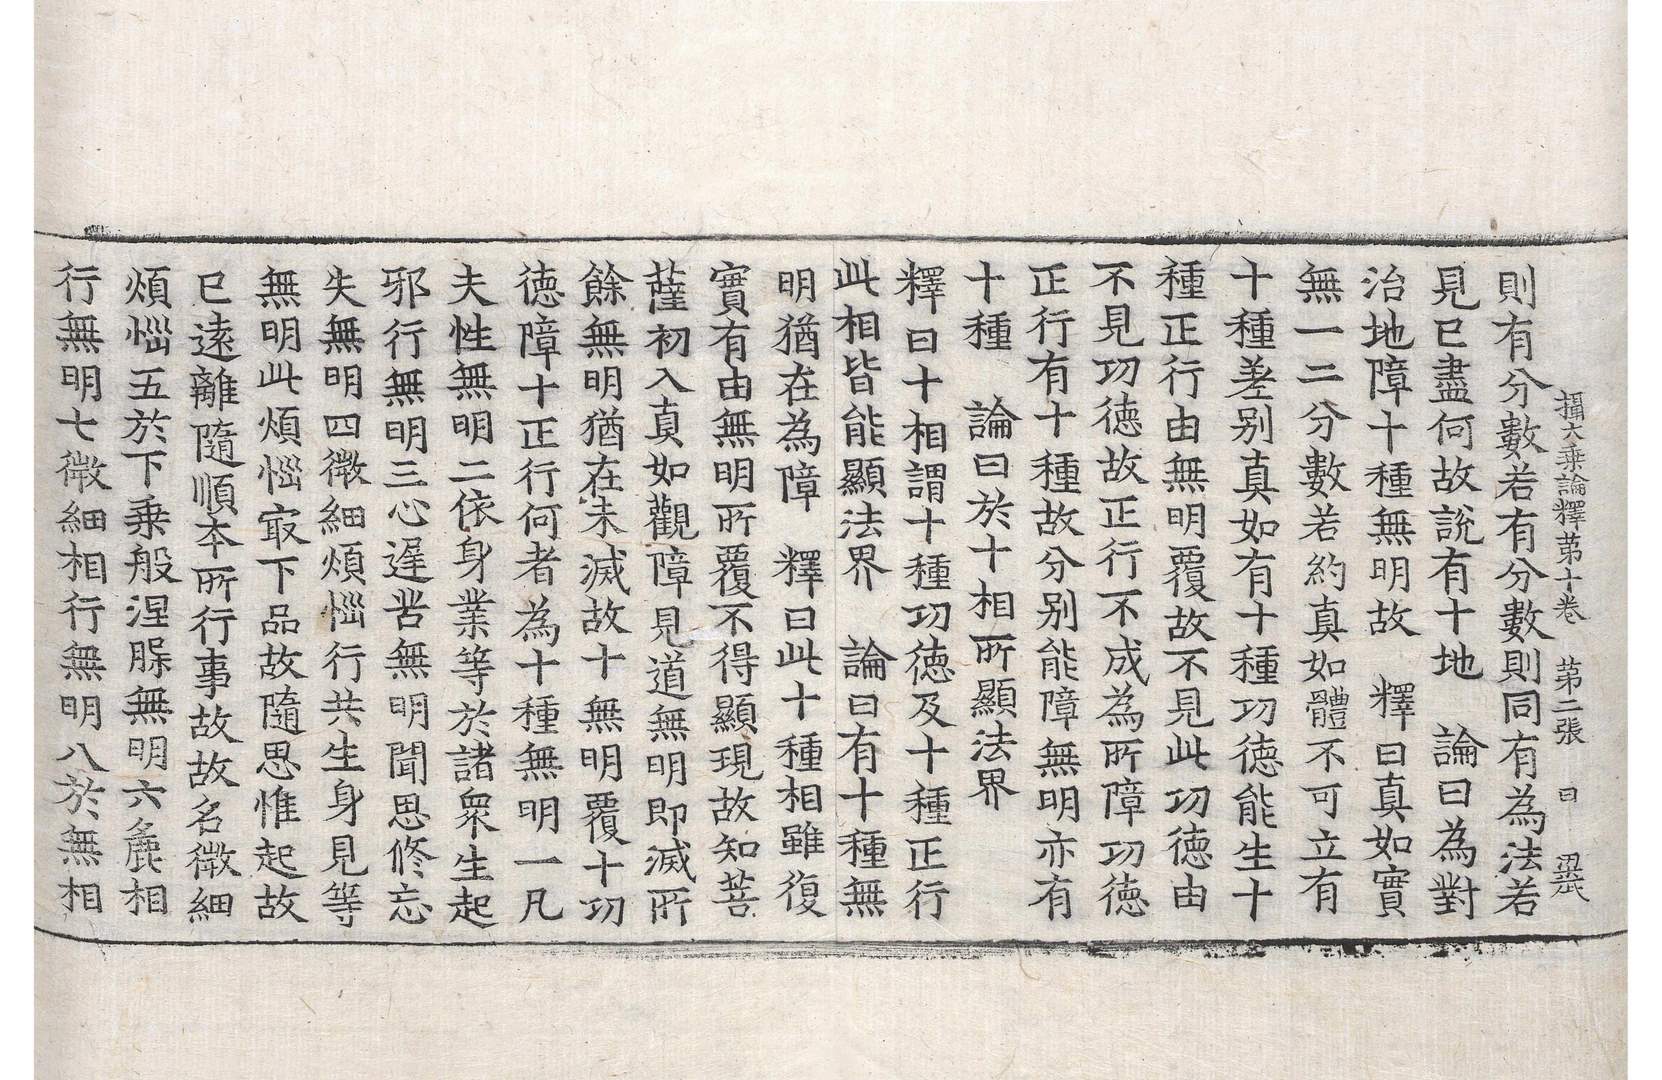 攝大乗論釋苐十卷 苐二張 曰
則有分數若有分數則同有為法若
見已盡何故說有十地 論曰為對
治地障十種無明故 釋曰真如實
無一二分數若約真如體不可立有
十種差别真如有十種功德能生十
種正行由無明覆故不見此功德由
不見功德故正行不成為所障功德
正行有十種故分别能障無明亦有
十種 論曰於十相所顯法界
釋曰十相謂十種功德及十種正行
此相皆能顯法界 論曰有十種無
明猶在為障 釋曰此十種相雖復
實有由無明所覆不得顯現故知菩
薩初入真如觀障見道無明即滅所
餘無明猶在未滅故十無明覆十功
德障十正行何者為十種無明一凡
夫性無明二依身業等於諸衆生起
邪行無明三心遟苦無明聞思修忘
失無明四微細煩惱行共生身見等
無明此煩惱冣下品故隨思惟起故
已遠離隨順本所行事故故名微細
煩惱五於下乗般涅槃無明六麁相
行無明七微細相行無明八於無相